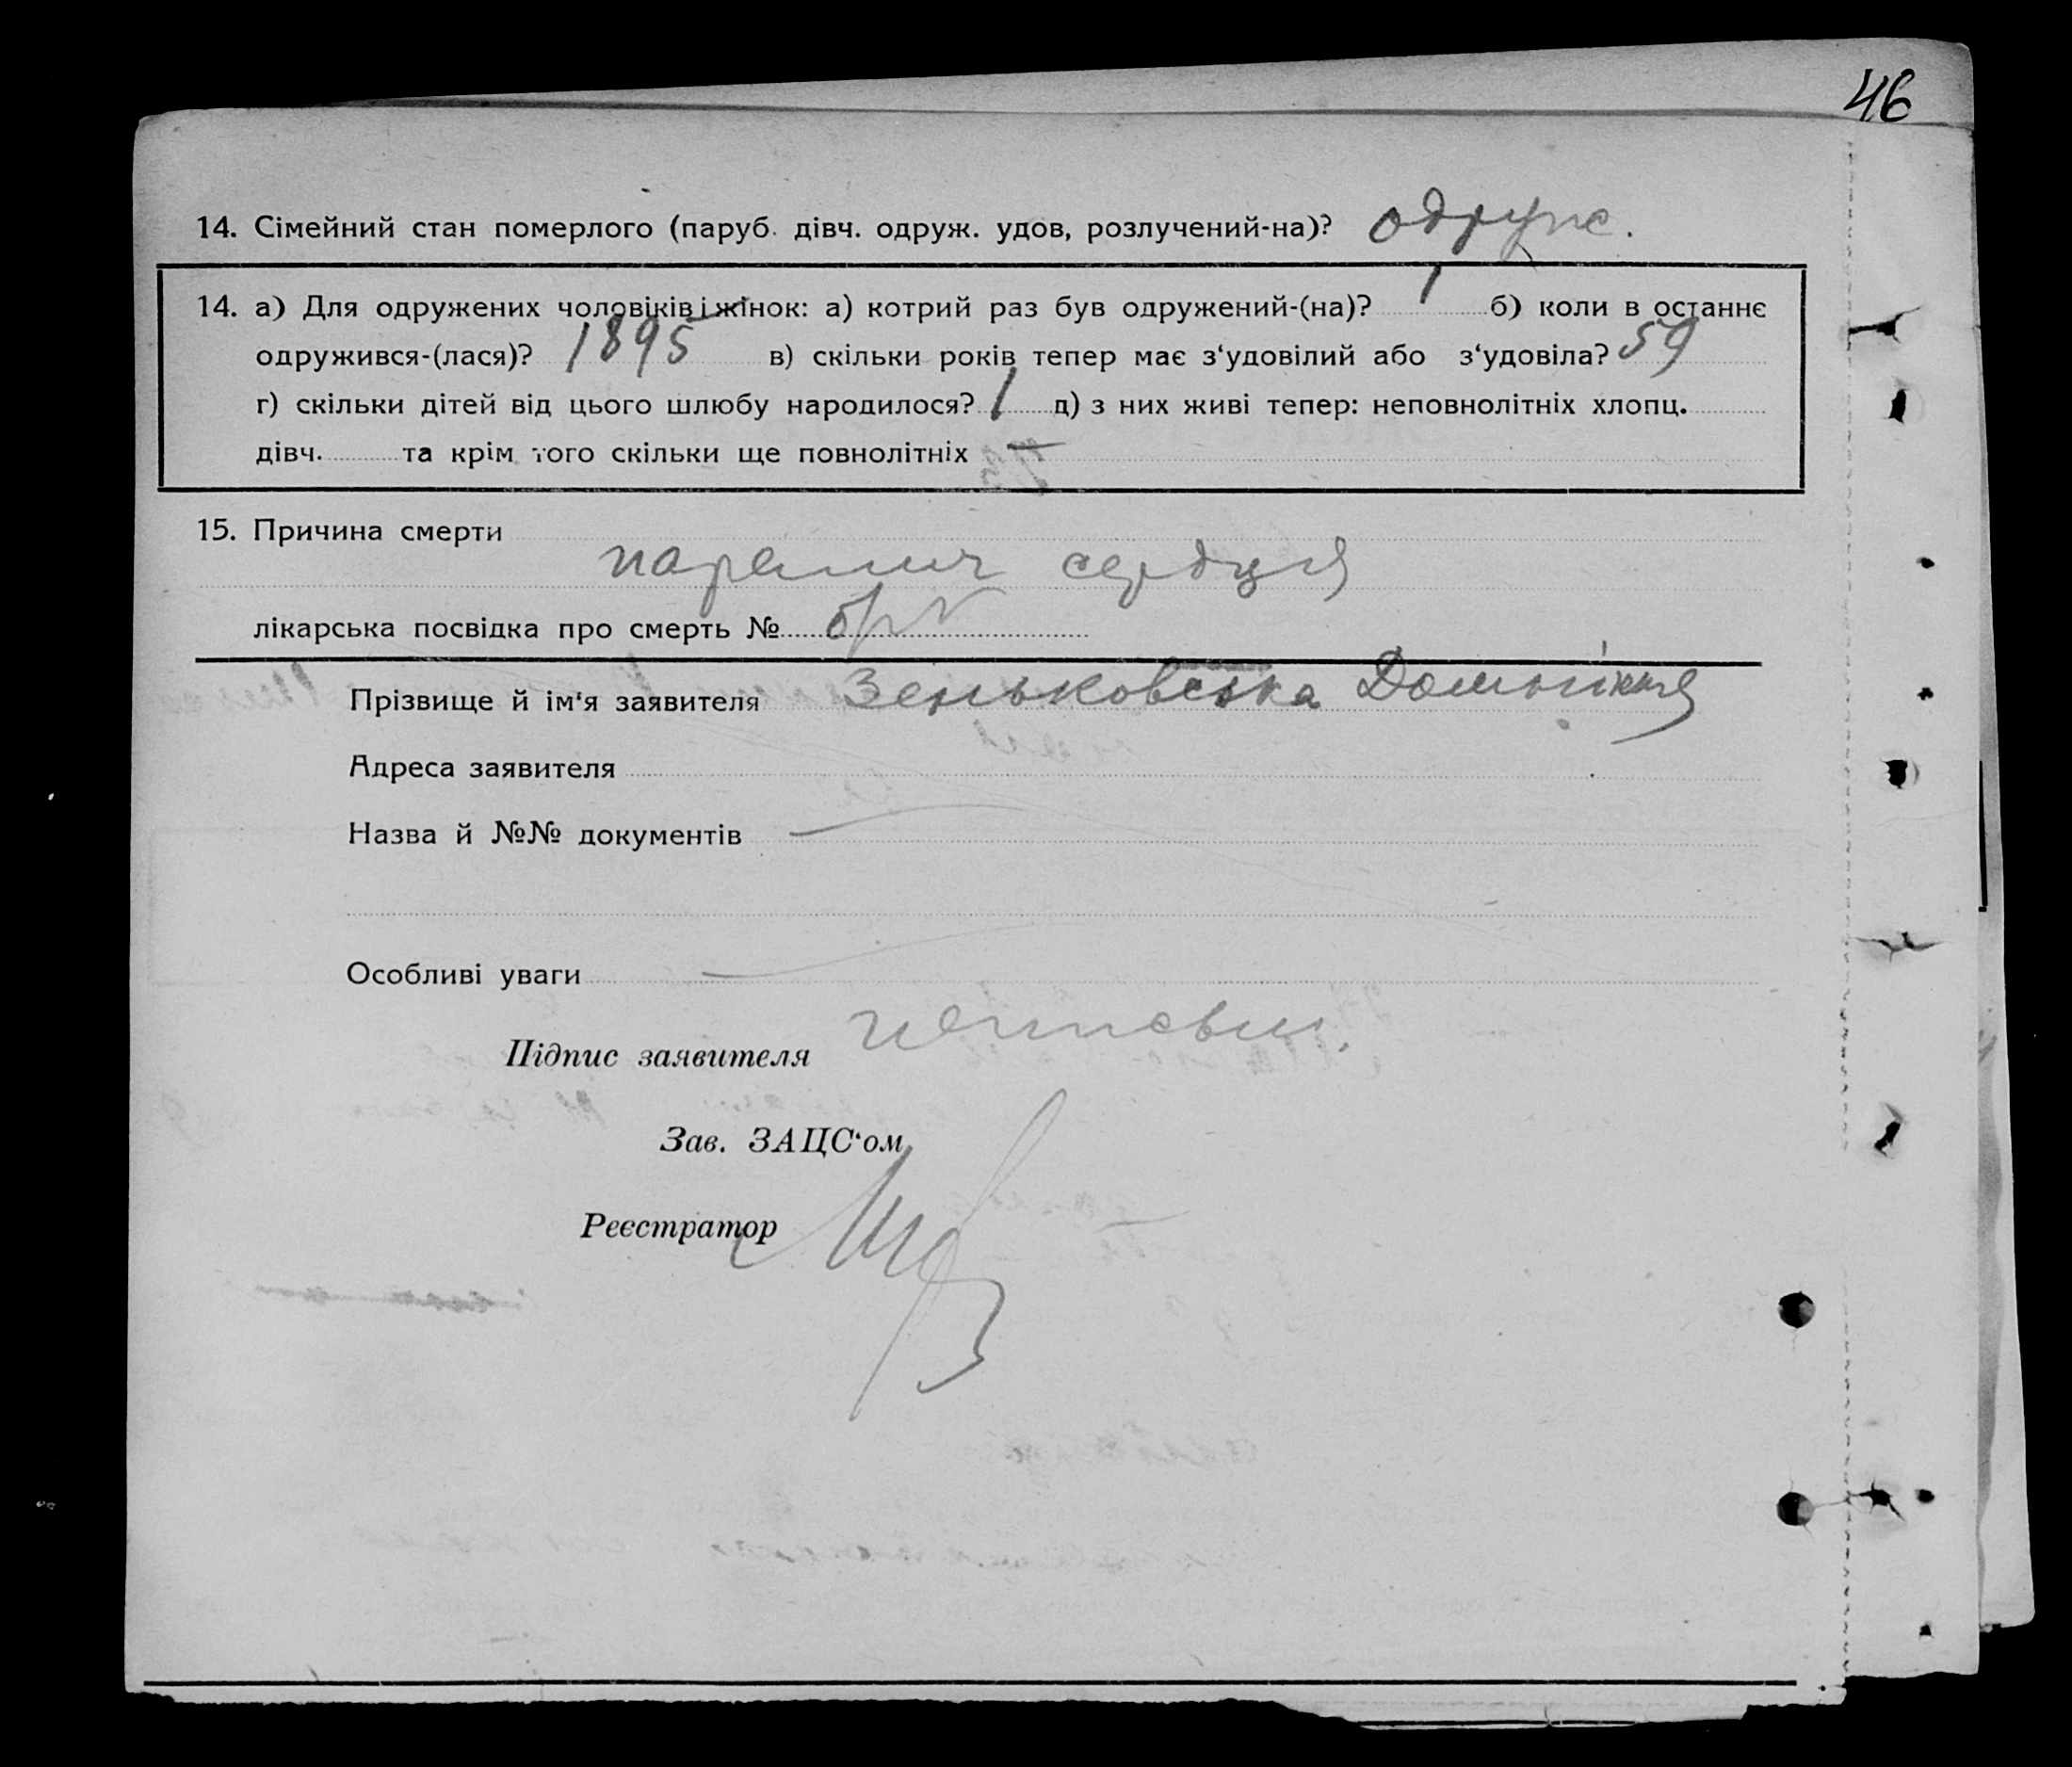 46
14. Сімейний стан померлого (паруб. дівч. одруж. удов, розлучений-на)? одруж.
14. а) Для одружених чоловіків і жінок: а) котрий раз був одружений-(на)? 1 б) коли в останнє
одружився-(лася)? 1895 в) скільки років тепер має з‘удовілий або з‘удовіла? 59
г) скільки дітей від цього шлюбу народилося? 1 д) з них живі тепер: неповнолітніх хлопц.
дівч. та крім того скільки ще повнолітніх —
15. Причина смерти
параліч сердця
лікарська посвідка про смерть №
Прізвище й ім‘я заявителя Зеньковська
Адреса заявителя
Назва й №№ документів —
Особливі уваги —
Підпис заявителя неписьм.
Зав. ЗАЦС‘ом
Реєстратор